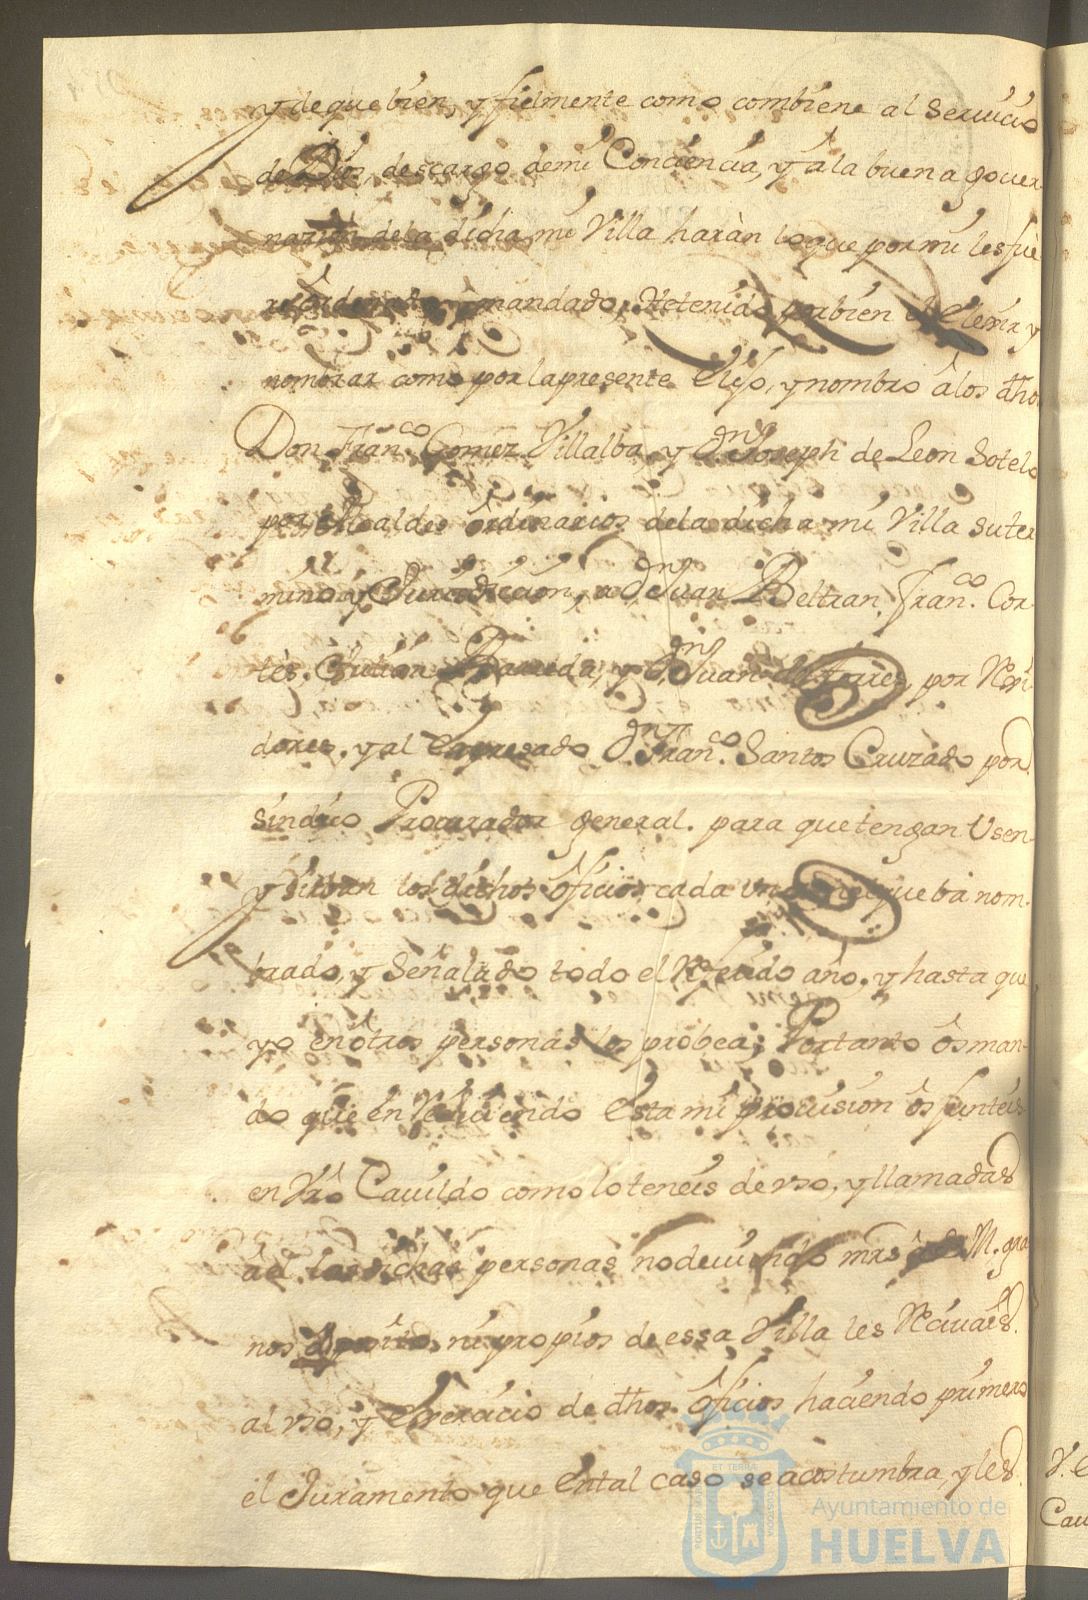 y de que bien, y fielmente como combiene al servicio
de Dios, descargo demi Conciencia, y âla buena gover
nazion dela dicha mi Villa haràn loque pormi lesfue
re ordenado y mandado, Hetenido porbien elexir y
nombrar como porlapresente Elijo, y nombro âlos dhos
Don Fran.co Gomez Villalba y Dn. Joseph de Leon Sotelo
por Alcaldes ôrdinarios dela dicha mi Villa suter
mino y Jurisdiccion, a Dn. Juan Beltran, Fran.co Cor-
tès, Julian Barreda, y Dn. Juan de Torrès, por Reji
dores, y al Expresado Dn. Fran.co Santos Cruzado por
sindico Procurador general. para que tengan Usen
y sirban los dichos ôficios cada uno enel que bà nom-
brado, y Señalado todo el Referido año, y hasta que
yo en ôtras personas los probea; Portanto ôs man-
do que en reciviendo Esta mi provision ôs junteis
en Vro Cavildo como lo teneis de vso, y llamadas
âel las dichas personas nodeviendo mrs â S. M. gra
nos â posito, ni propios de essa Villa les Reciuaes
al vso, y Exercicio de dhos ôficios haciendo primero
el Juramento que Ental caso se acostumbra, y les
Cau
Ayuntamiento de
HUELVA